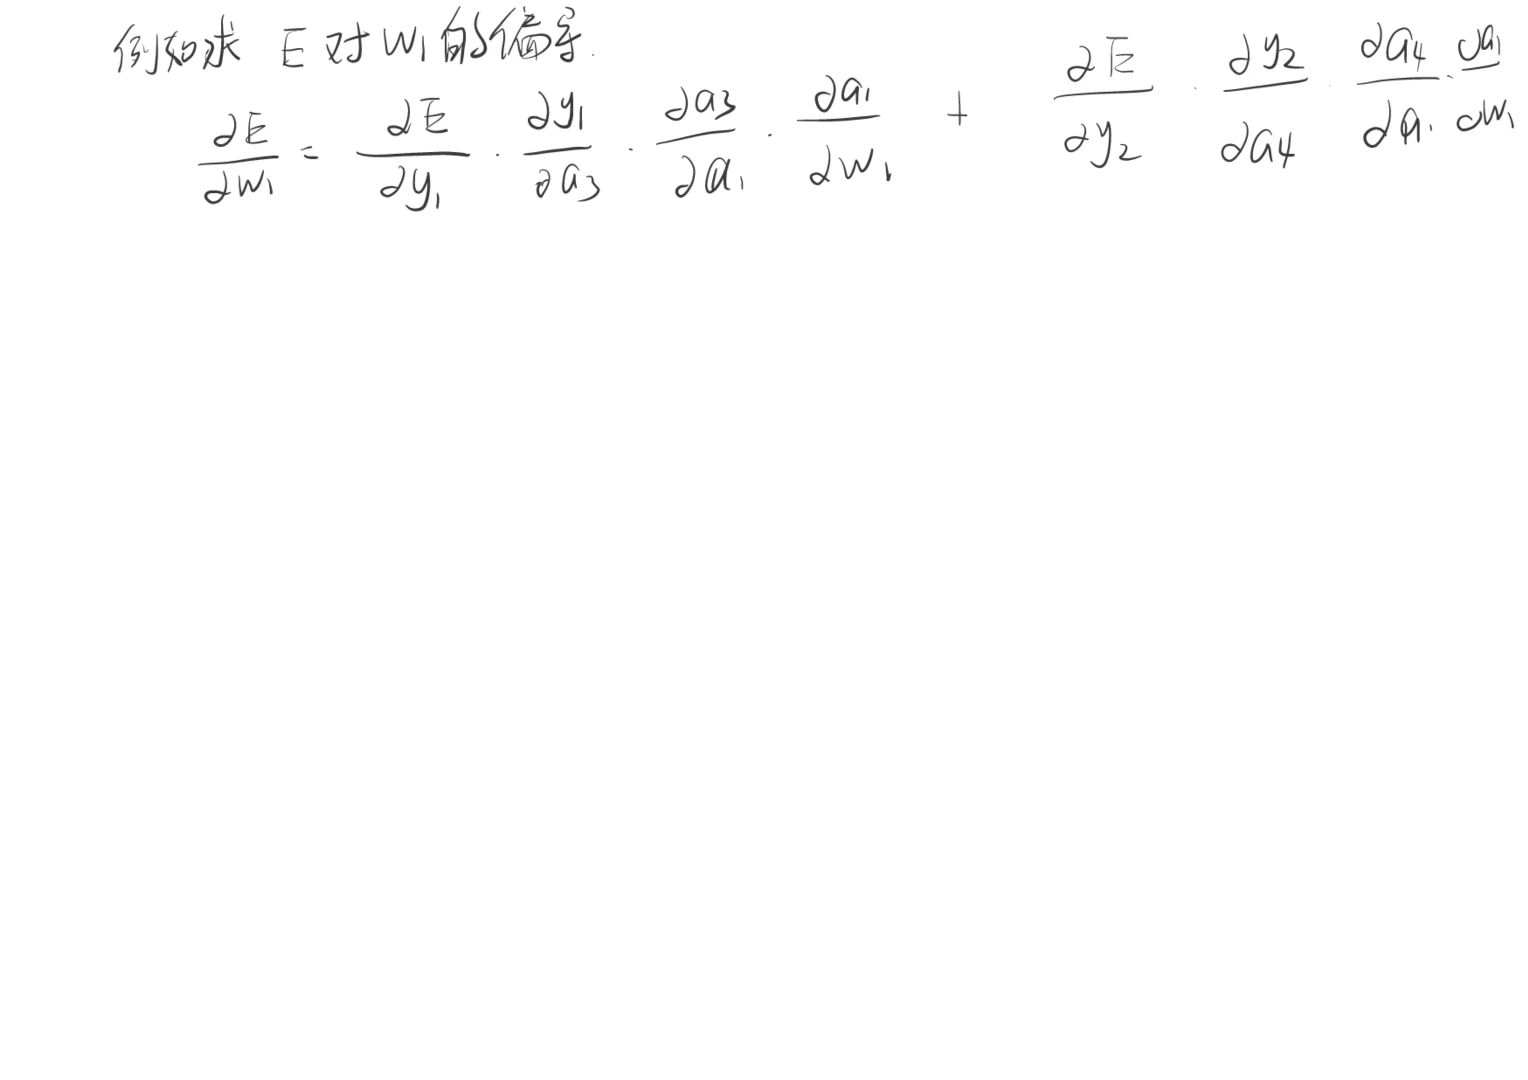 例如求 E对W₁的偏导.
∂E/∂W₁ = ∂E/∂y₁ · ∂y₁/∂a₃ · ∂a₃/∂a₁ · ∂a₁/∂W₁ + ∂E/∂y₂ · ∂y₂/∂a₄ · ∂a₄/∂a₁ · ∂a₁/∂W₁